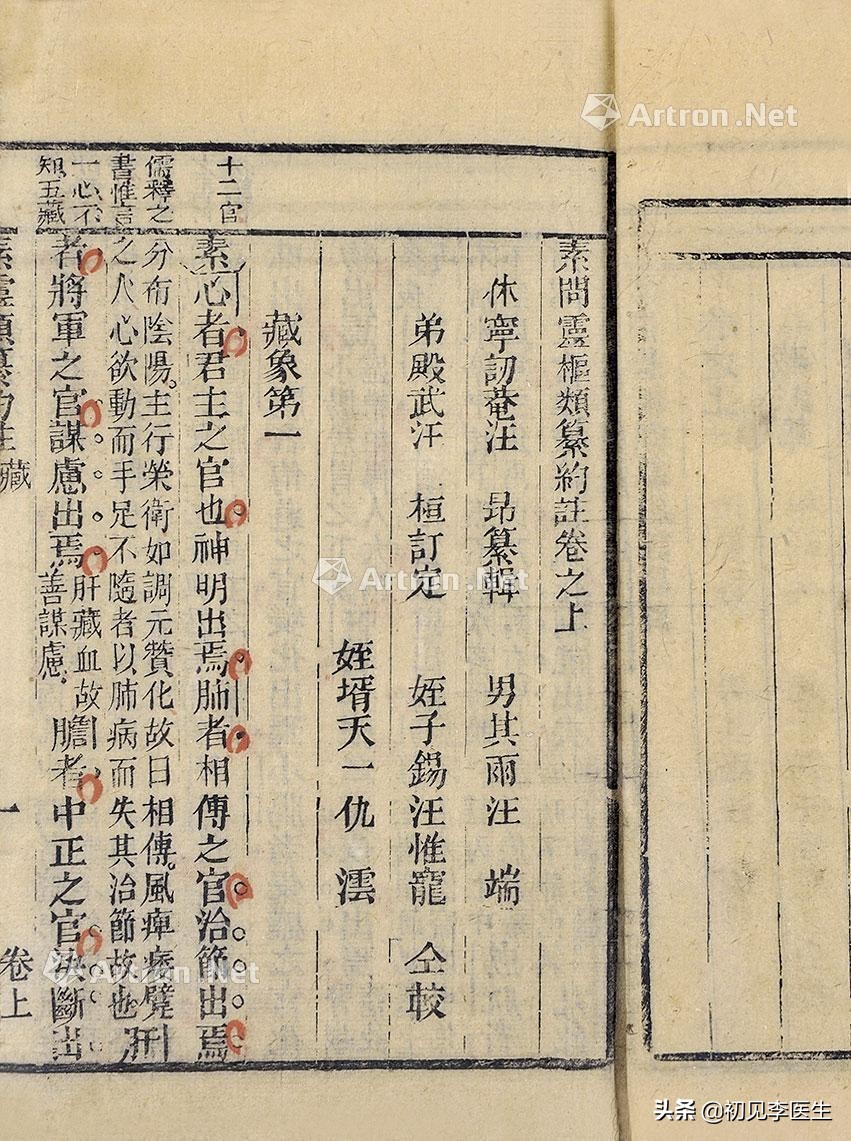 素問靈樞類纂約註卷之上
休寧訒菴汪　昻纂輯　男其兩汪　端
弟殿武汪　桓訂定　姪子錫汪惟寵　仝較
姪壻天一仇　澐
藏象第一
十二官
素心者君主之官也神明出焉肺者相傳之官治節出焉
儒釋之
書惟言
一心不
知五藏
分布陰陽。主行榮衛如調元贊化故曰相傳。風痺痿躄刑
之人心欲動而手足不隨者以肺病而失其治節故也。肝
者將軍之官謀慮出焉肝藏血故善謀慮。膽者中正之官決斷出
素靈類纂約註
藏
一
卷上
Artron.Net
Artron.Net
Artron.Net
头条 @初见李医生